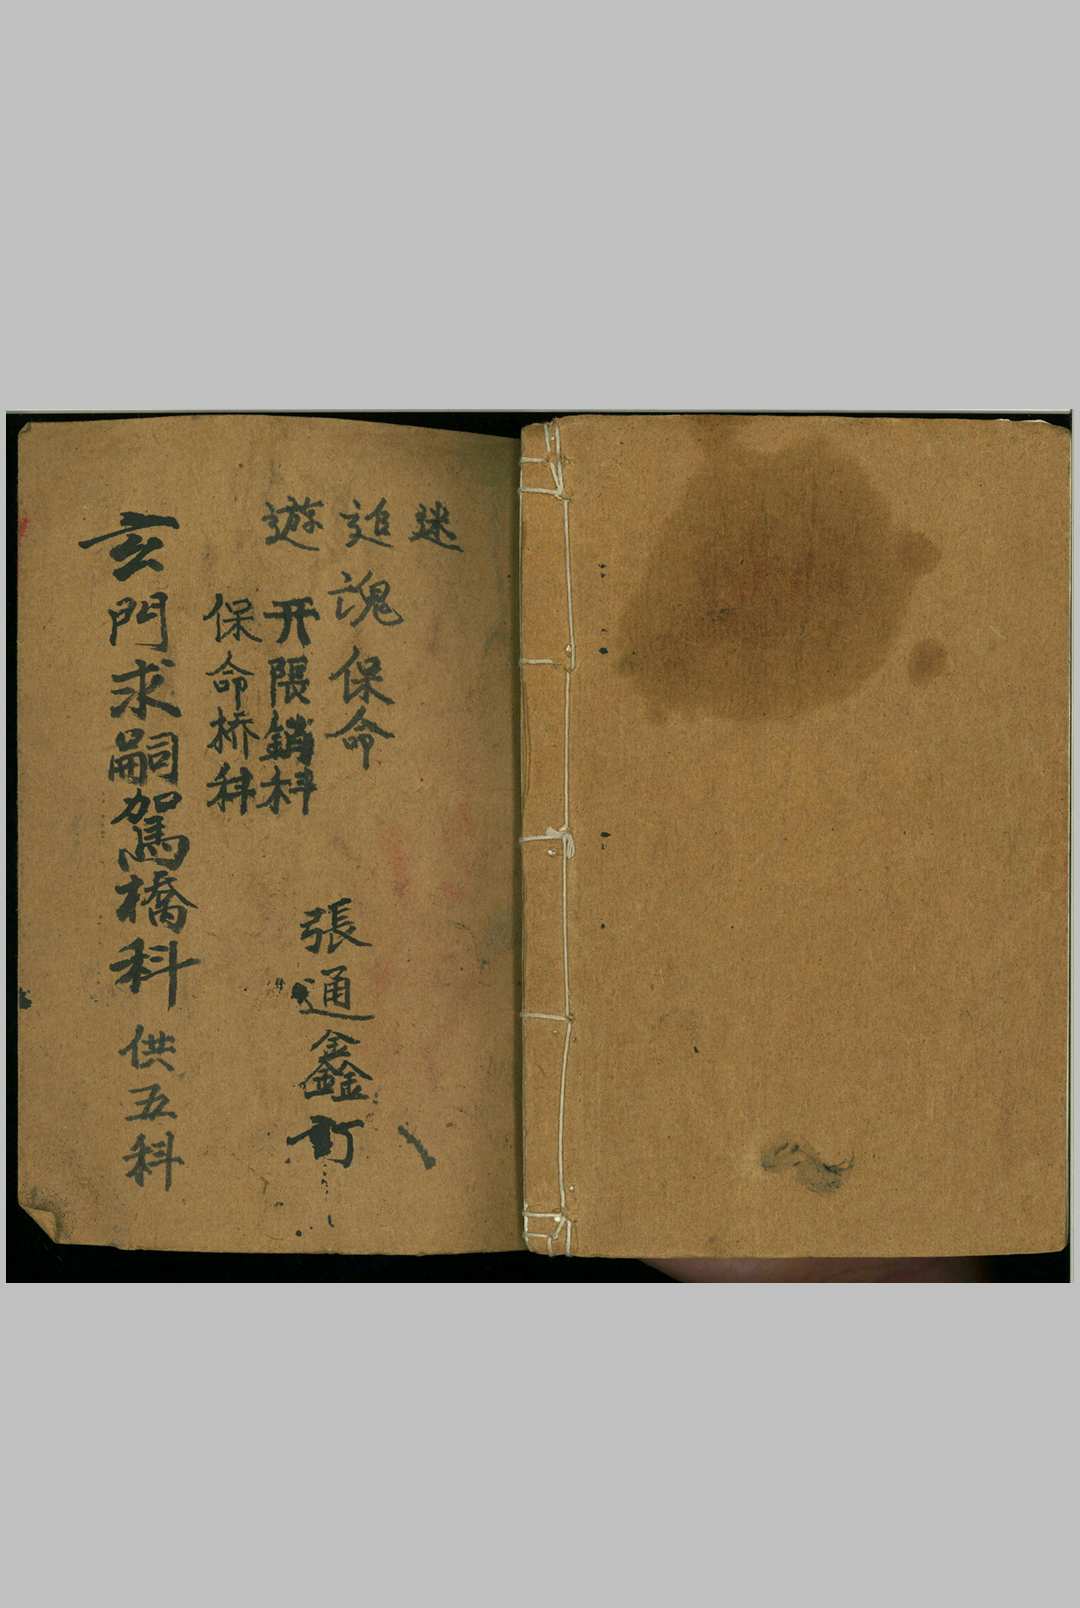 迷
追魂保命
遊
开限銷科
保命桥科
張通鑫訂
玄門求嗣駕橋科 供五科